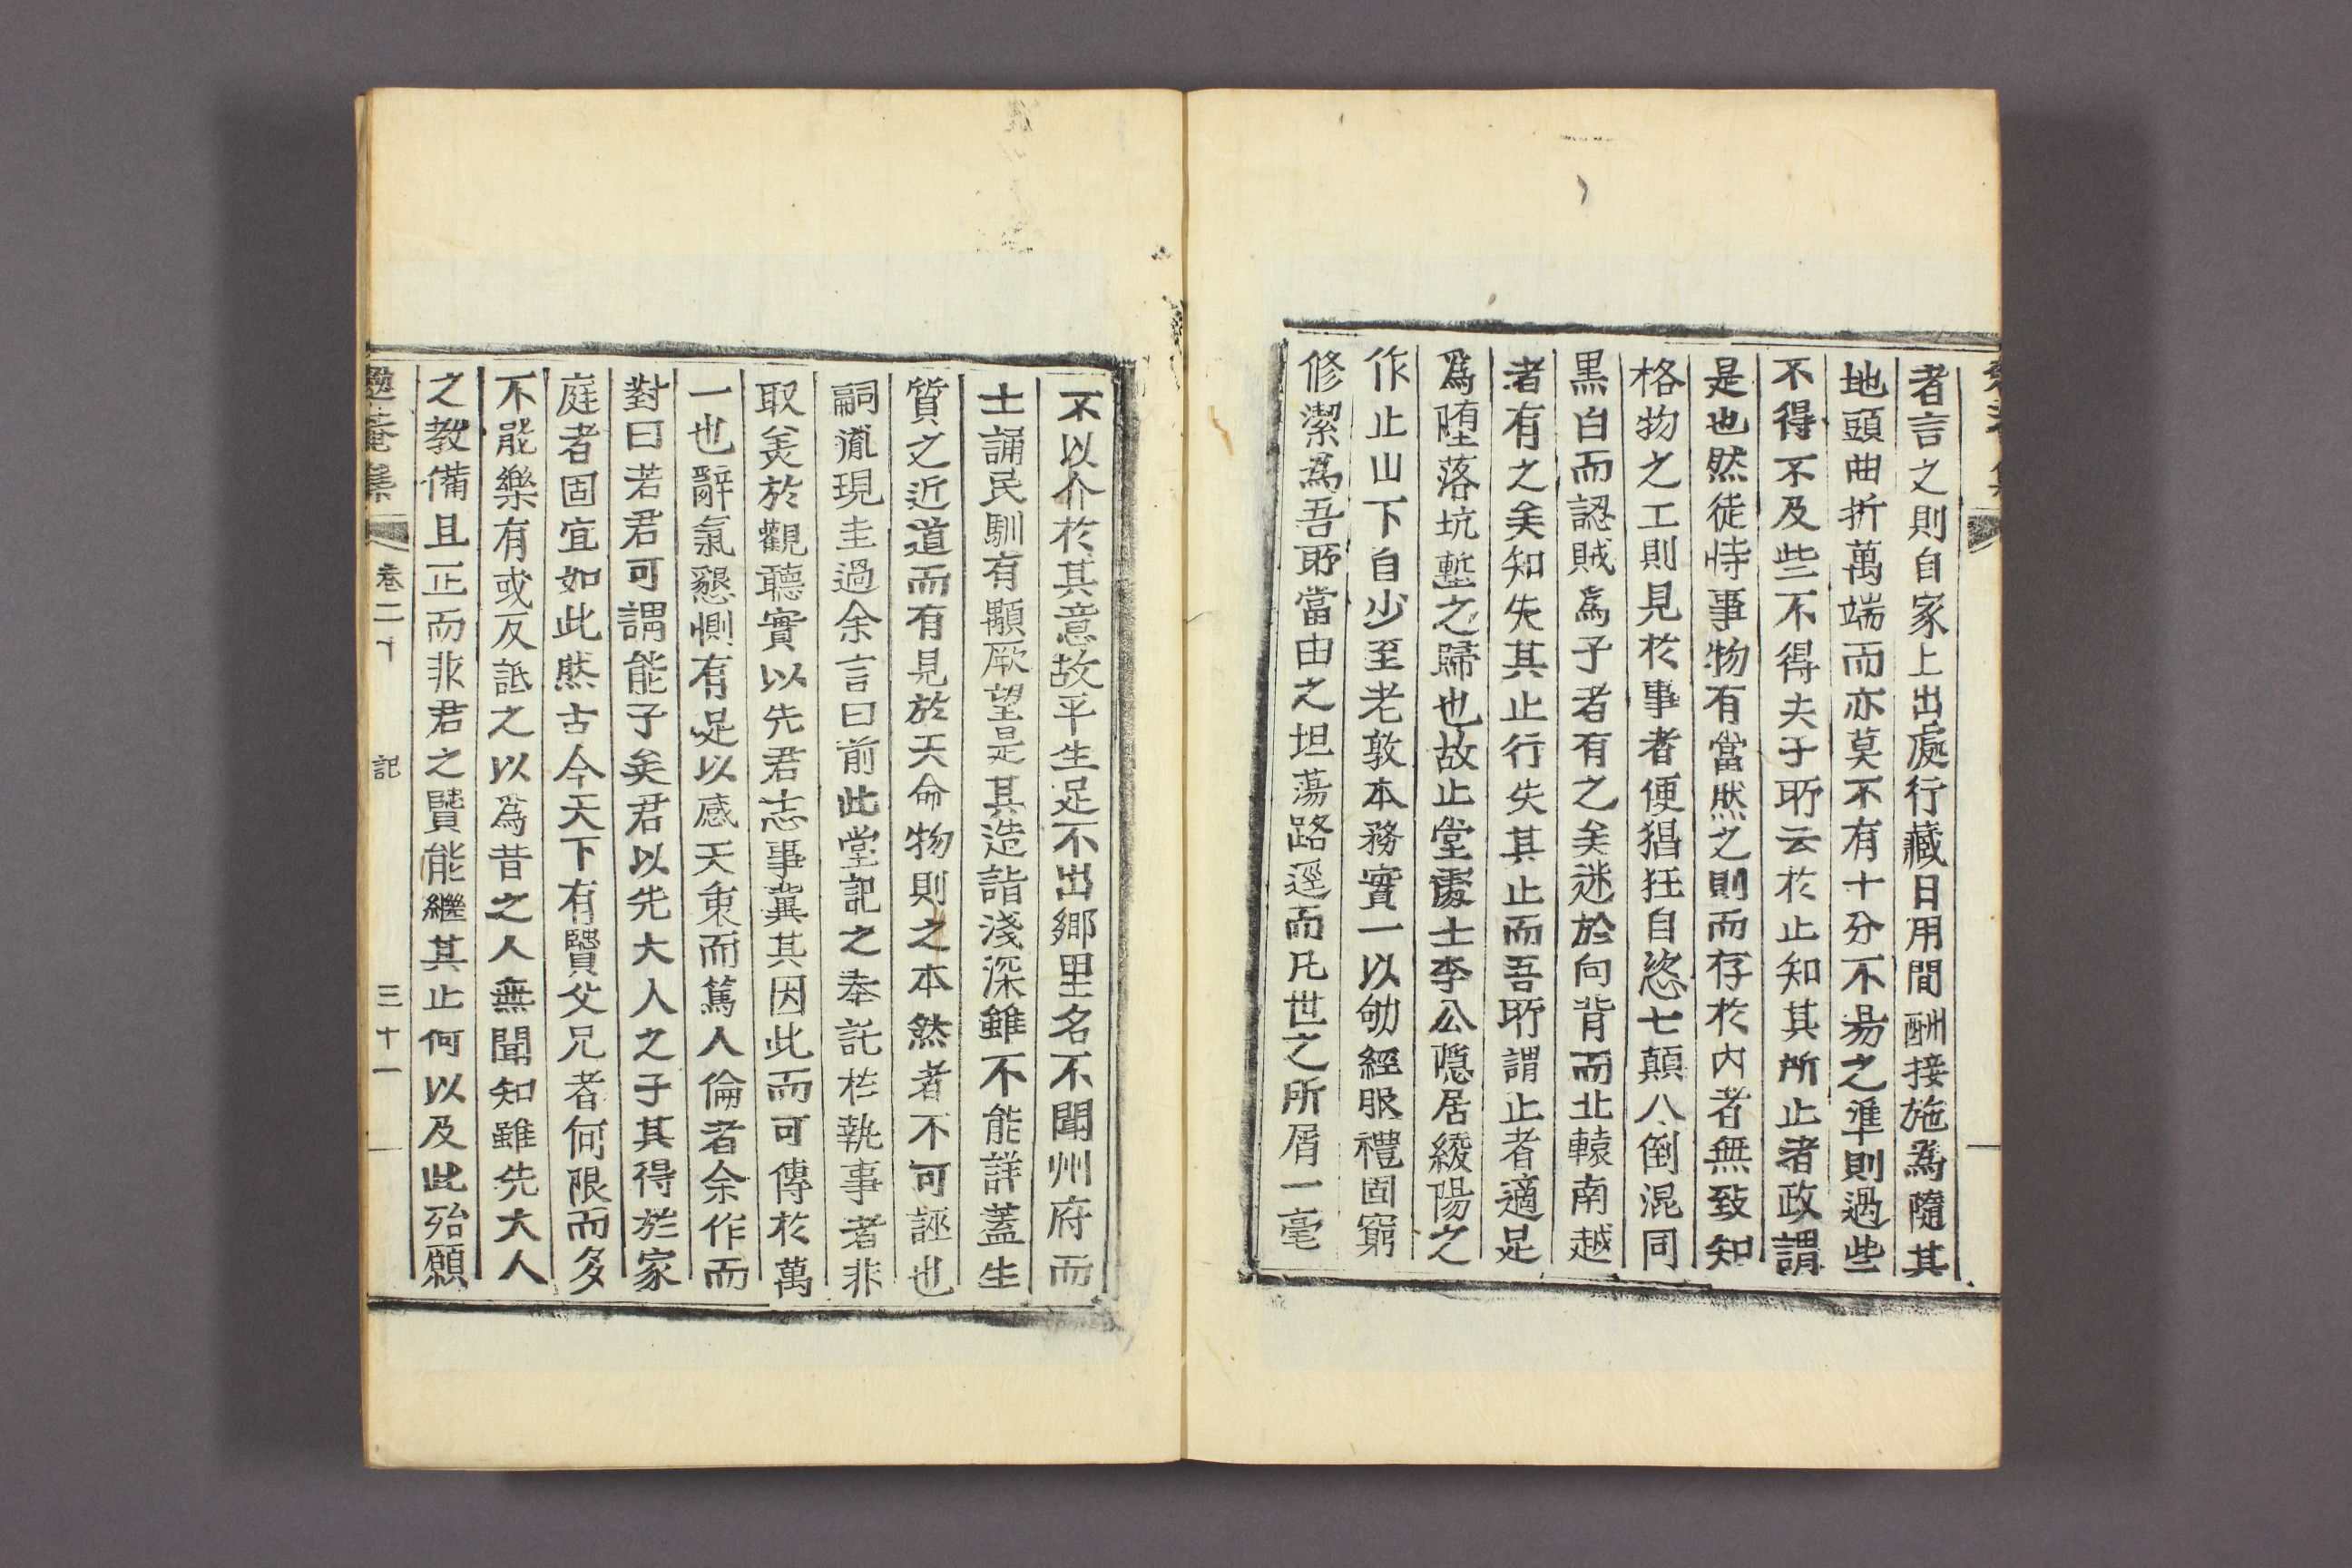 者言之則自家上出處行藏日用間酬接施爲隨其
地頭曲折萬端而亦莫不有十分不易之準則過些
不得不及些不得夫子所云於止知其所止者政謂
是也然徒恃事物有當然之則而存於內者無致知
格物之工則見於事者便猖狂自恣七顛八倒混同
黑白而認賊爲子者有之矣迷於向背而北轅南越
者有之矣知失其止行失其止而吾所謂止者適足
爲陸落坑塹之歸也故止堂處士李公隱居綾陽之
作止山下自少至老敦本務實一以劬經服禮固窮
修潔爲吾所當由之坦蕩路逕而凡世之所屑一毫
不以介於其意故平生足不出鄉里名不聞州府而
士誦民馴有顒厥望是其造詣淺深雖不能詳蓋生
質之近道而有見於天命物則之本然者不可誣也
嗣胤現圭過余言曰前此堂記之奉託於執事者非
取美於觀聽實以先君志事冀其因此而可傳於萬
一也辭氣懇惻有足以感天衷而篤人倫者余作而
對曰若君可謂能子矣君以先大人之子其得於家
庭者固宜如此然古今天下有賢父兄者何限而多
不能樂有或反詆之以爲昔之人無聞知雖先大人
之教備且正而非君之賢能繼其止何以及此殆願
卷二十 記 三十一